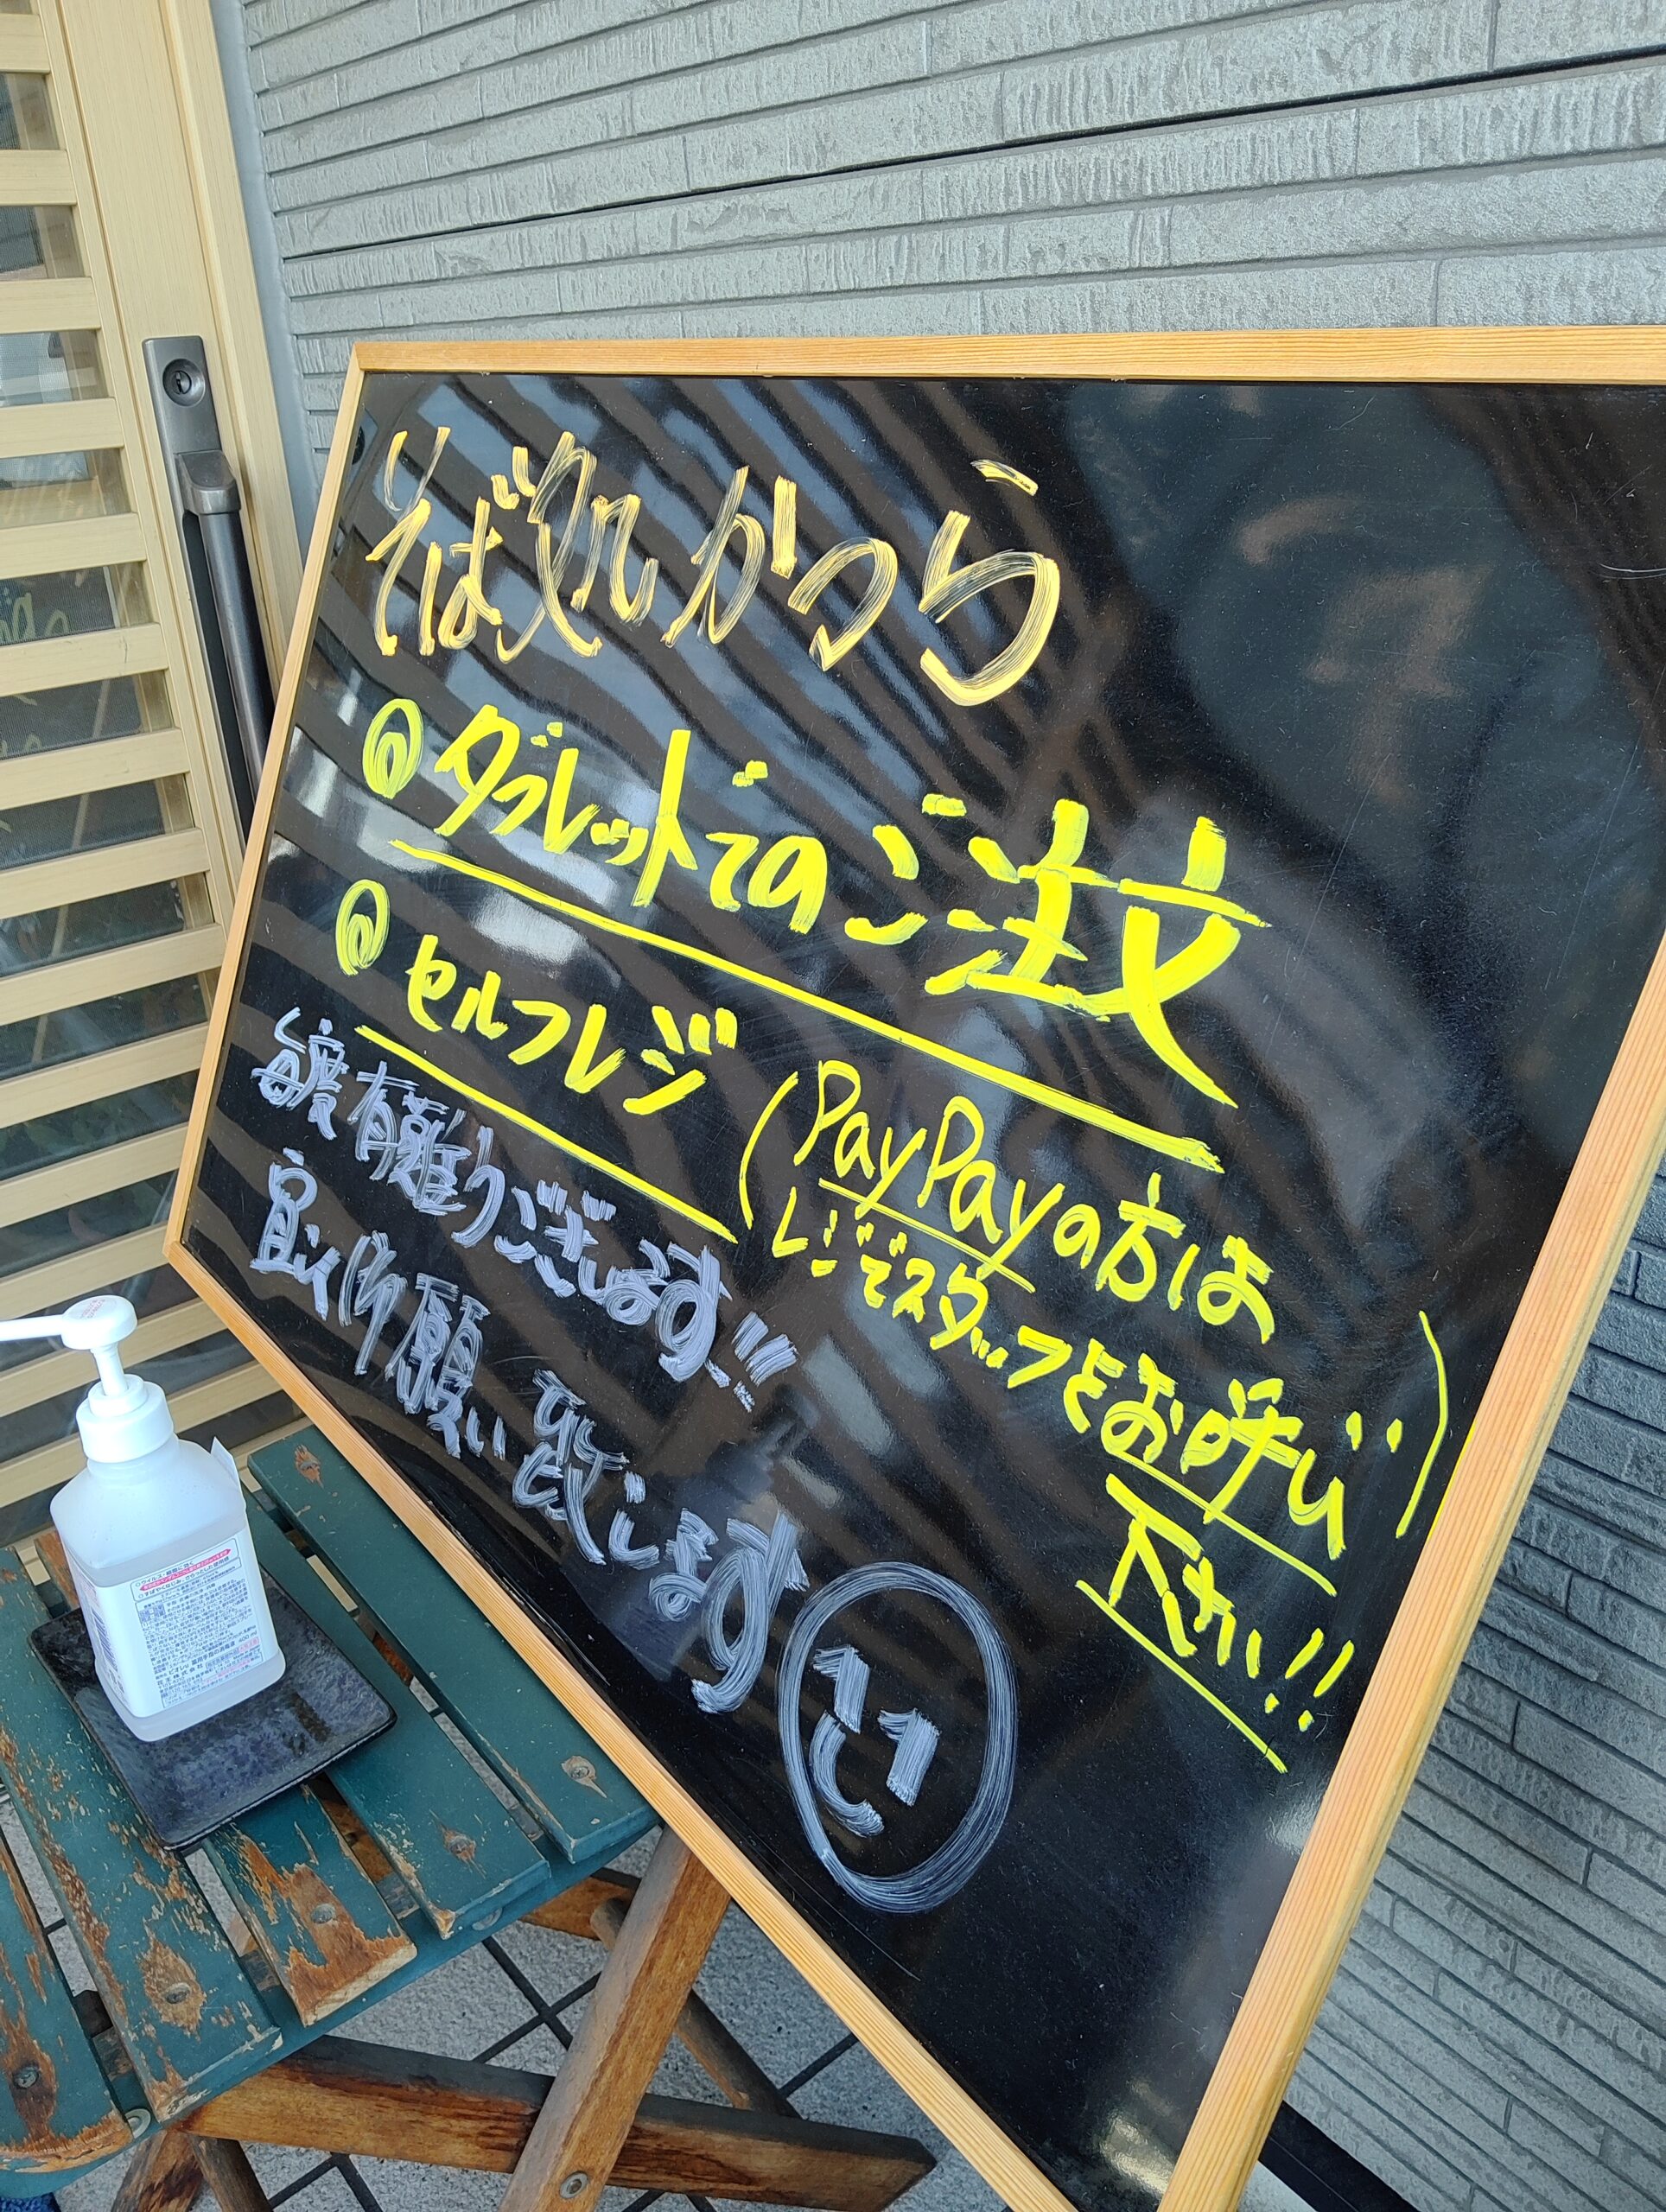 そば処かつら
タブレットでのご注文
セルフレジ
(PayPayの方は
レジでスタッフをお呼び
下さい!!)
毎度有難うございます!!
宜しく御願い致します